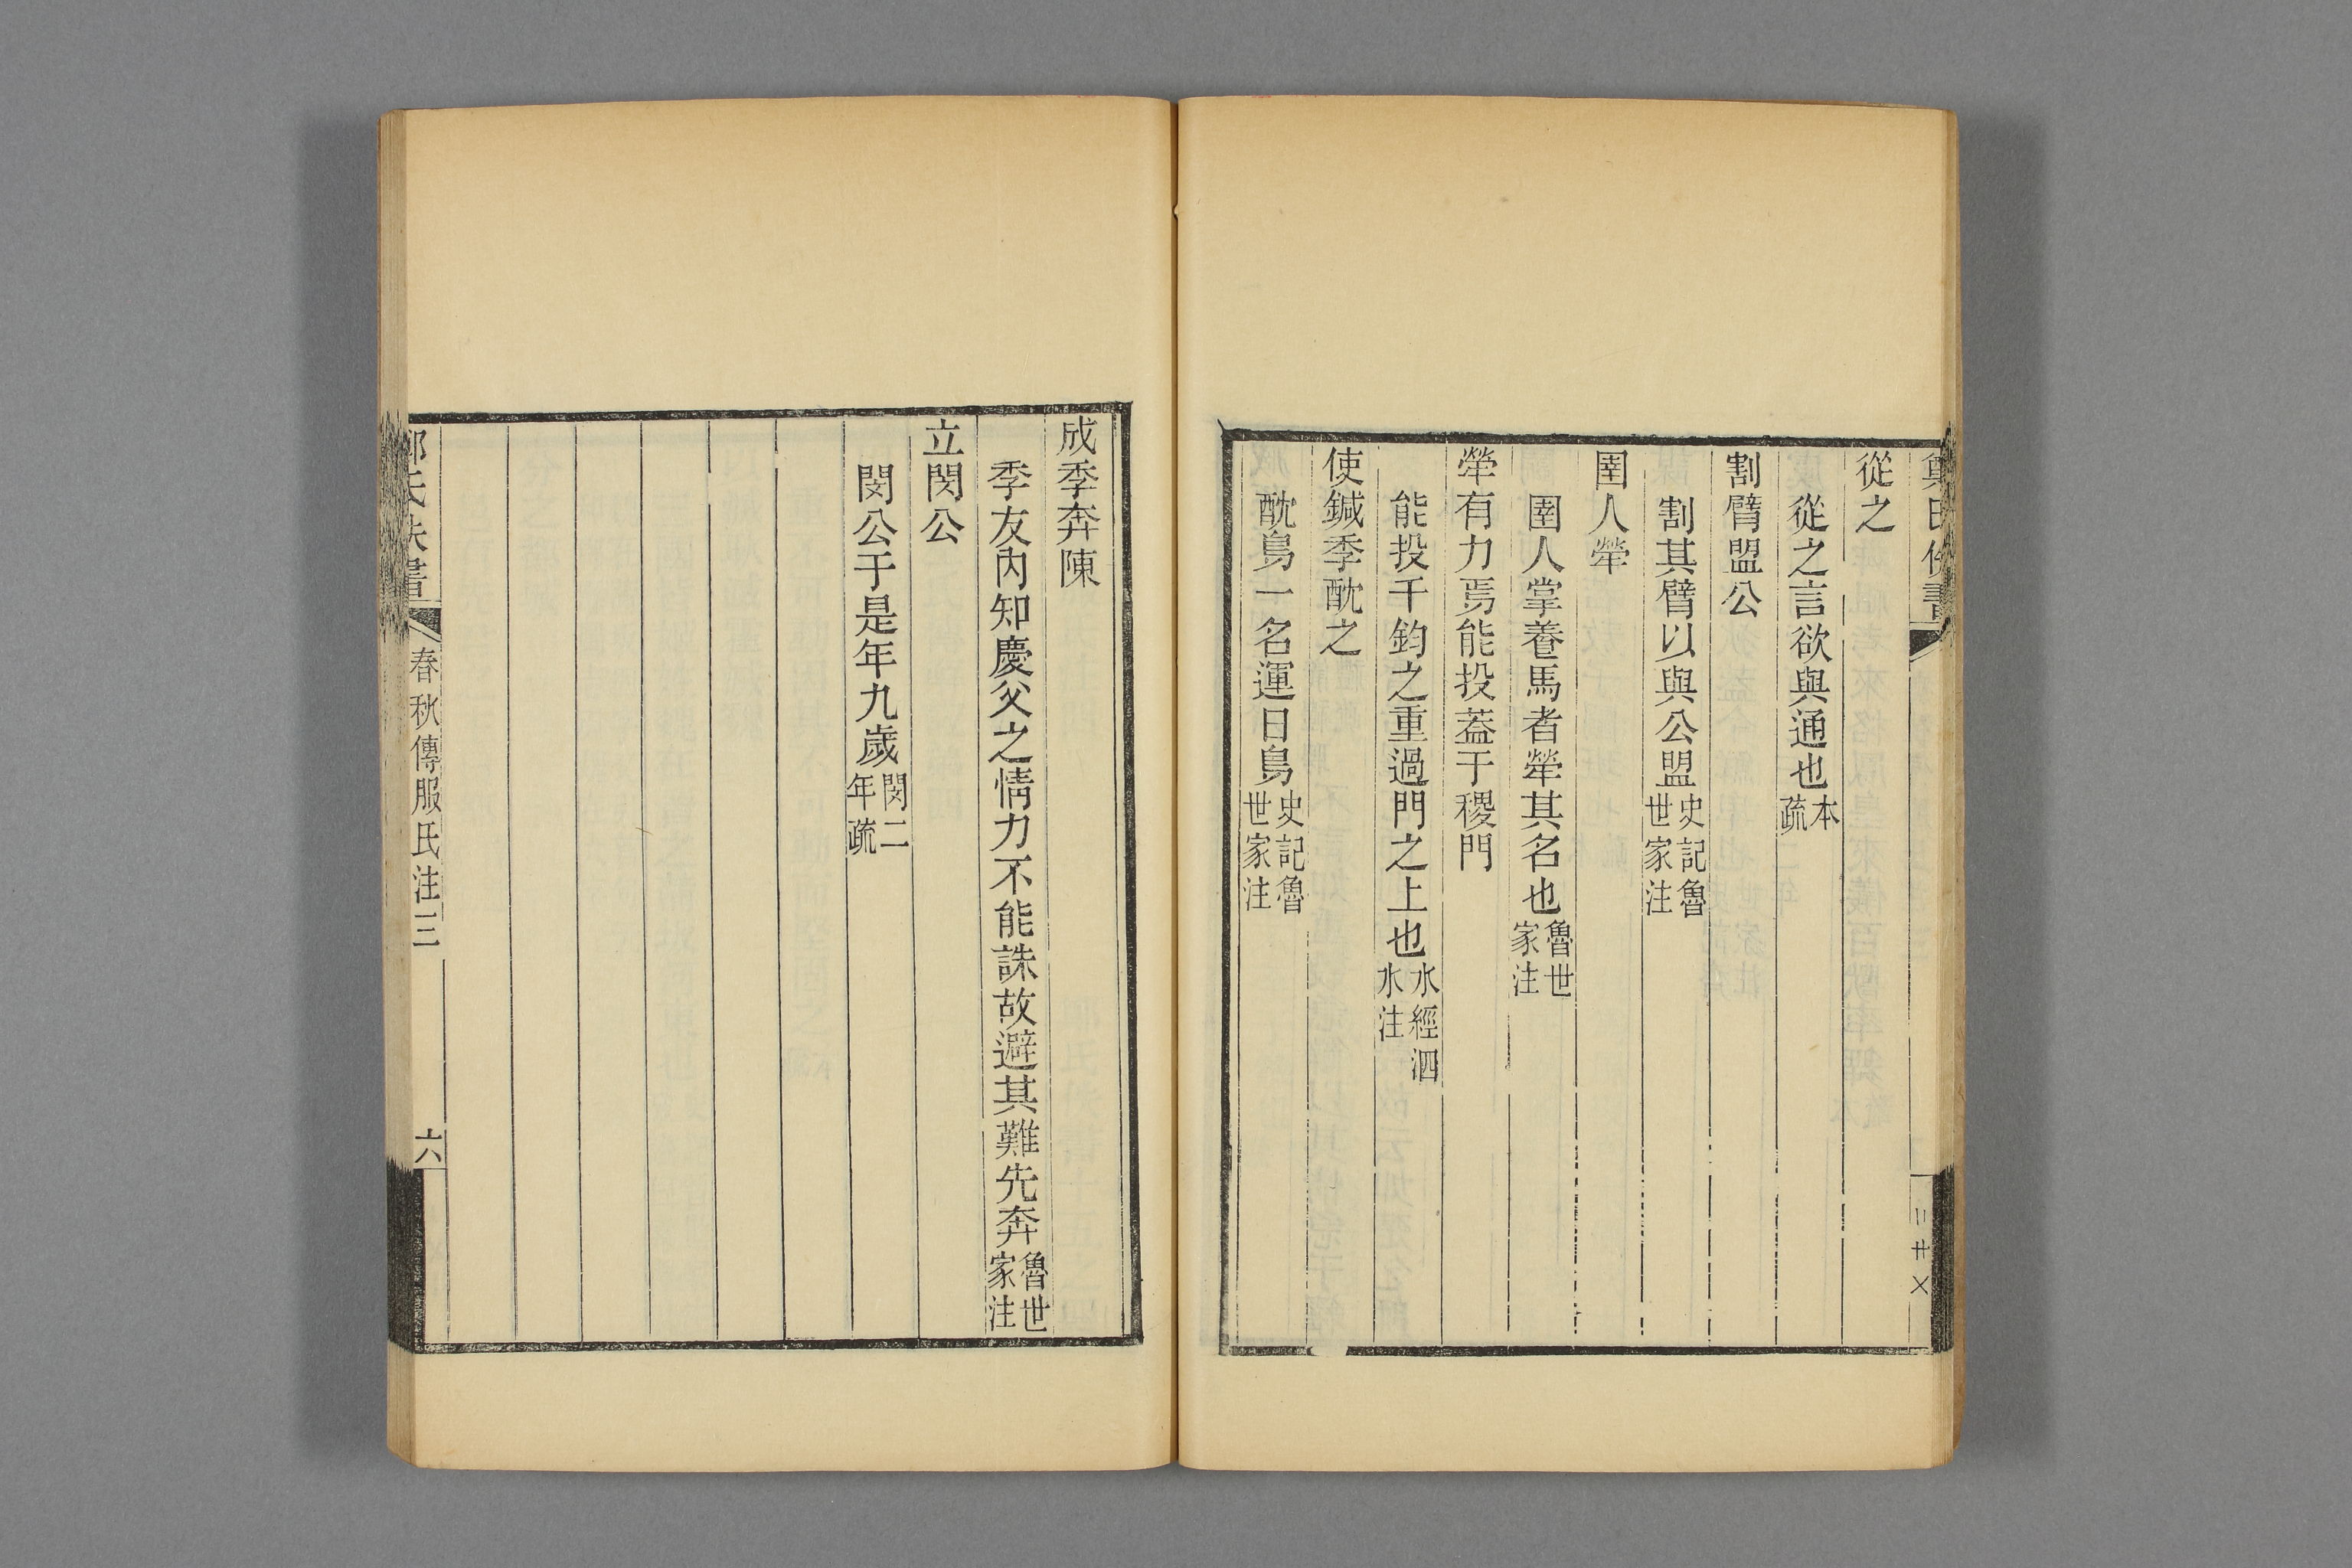 從之
從之言欲與通也本疏
割臂盟公
割其臂以與公盟史記魯世家注
圉人犖
圉人掌養馬者犖其名也魯世家注
犖有力焉能投蓋于稷門
能投千鈞之重過門之上也水經泗水注
使鍼季酖之
酖鳥一名運日鳥史記魯世家注
成季奔陳
季友內知慶父之情力不能誅故避其難先奔魯世家注
立閔公
閔公于是年九歲閔二年疏
春秋傳服氏注三
六